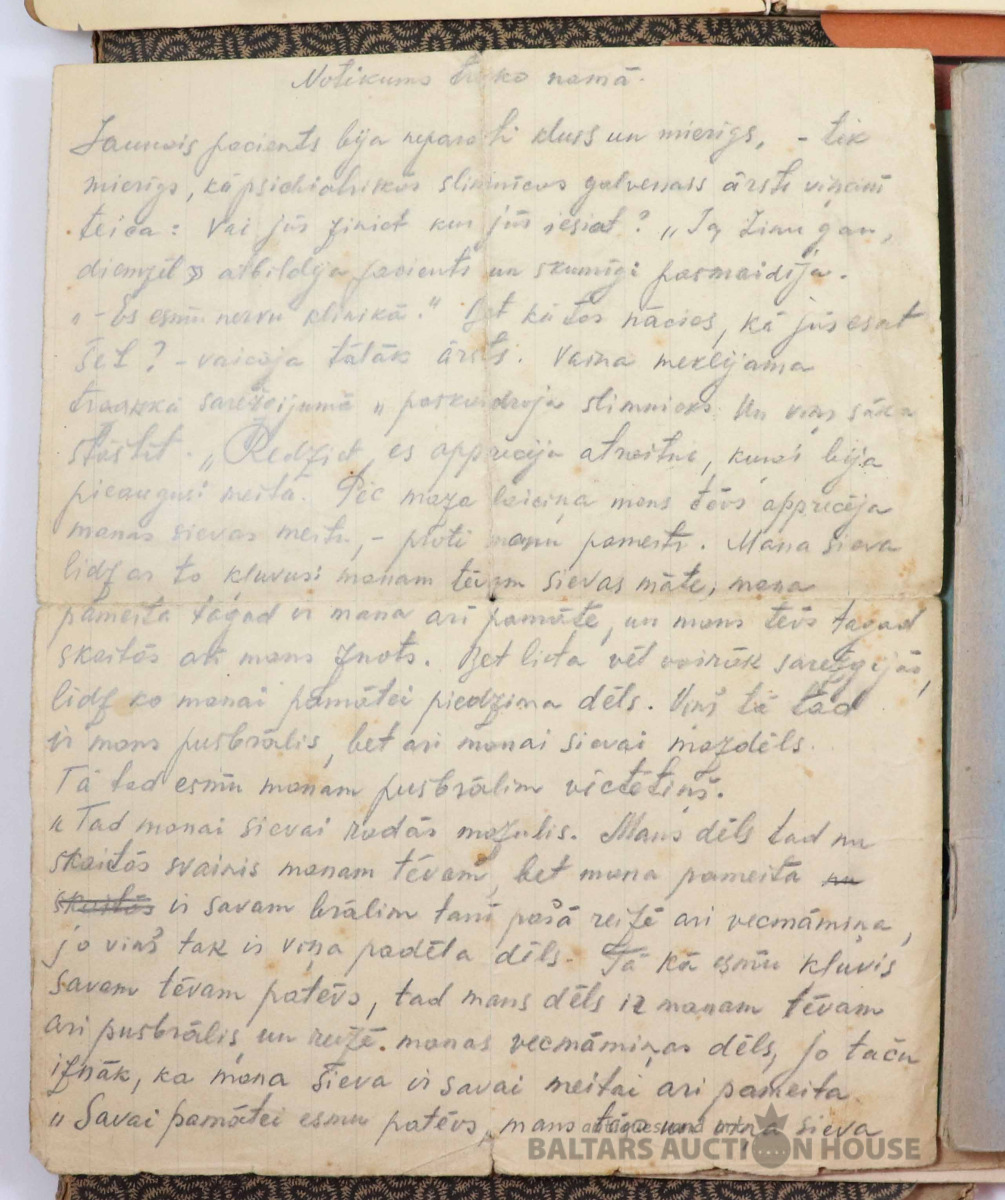 Notikums trako namā.
Jaunais pacients bija neparasti kluss un mierīgs, – tik
mierīgs, kā psichiatriskās slimnīcas galvenais ārsts viņam
teica: Vai jūs ziniet kur jūs iesiat? „Ja zinu gan,
diemžēl” atbildēja pacients un skumīgi pasmaidīja.
„– Es esmu nervu klinikā.“ Bet kā tas nācies, kā jūs esat
šeit? – vaicāja tālāk ārsts. Vaina meklējama
sarežģijumā „ paskaidroja slimnieks. Un viņš sāka
stāstīt. „Redziet, es apprecēju atraitni, kurai bija
pieaugusi meita. Pēc maza laiciņa mans tēvs apprecēja
manas sievas meitu, – proti manu pameitu. Mana sieva
līdz ar to kļuvusi manam tēvam sievas māte, mana
pameita tagad ir mana arī pamāte, un mans tēvs tagad
skaitās arī mans znots. Bet lieta vēl vairāk sarežģijās,
līdz ko manai pamātei piedzima dēls. Viņš tā tad
ir mans pusbrālis, bet arī manai sievai mazdēls.
Tā tad esmu manam pusbrālim vectētiņš.
„Tad manai sievai radās mazulis. Mans dēls tad nu
skaitās svainis manam tēvam, bet mana pameita nu
skaitās ir savam brālim tanī pašā reizē arī vecmāmiņa,
jo viņš tak ir viņa padēla dēls. Tā kā esmu kļuvis
savam tēvam patēvs, tad mans dēls ir manam tēvam
arī pusbrālis, un reizē manas vecmāmiņas dēls, jo taču
iznāk, ka mana sieva ir savai meitai arī pameita
„Savai pamātei esmu patēvs, mans tēvs un viņa sieva
BALTARS AUCTION HOUSE